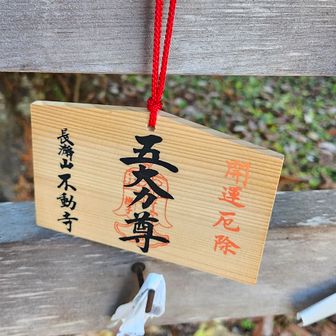 開運厄除
五大力尊
長瀞山不動寺